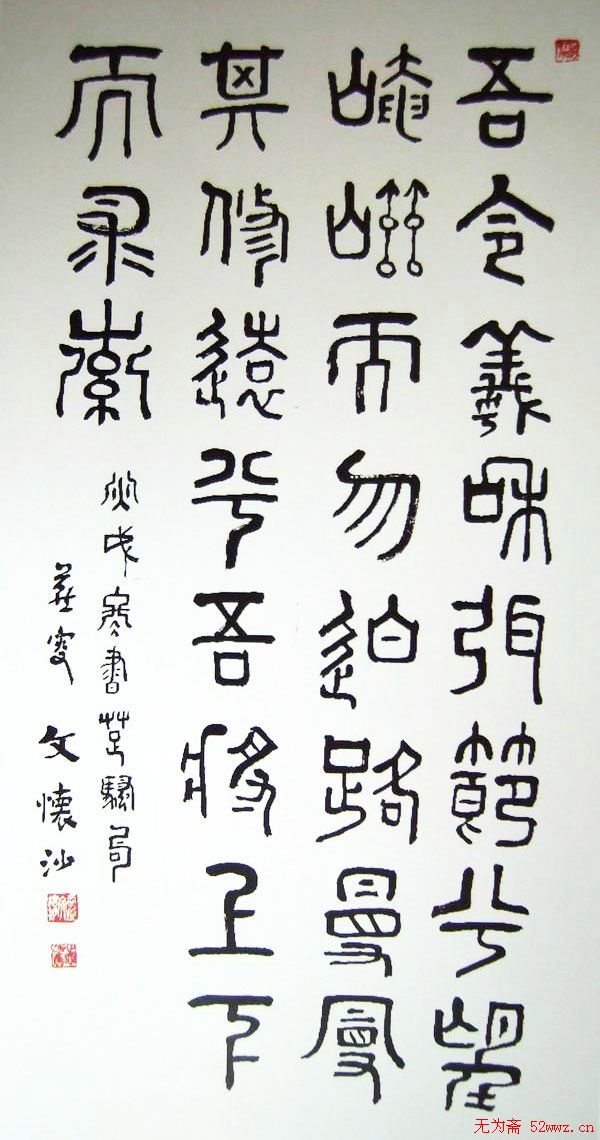 吾令羲和弭節兮望
崦嵫而勿迫路曼曼
其修遠兮吾將上下
而求索
戌寒書楚騷句
燕叟 文懷沙
无为斋 52wwz.cn